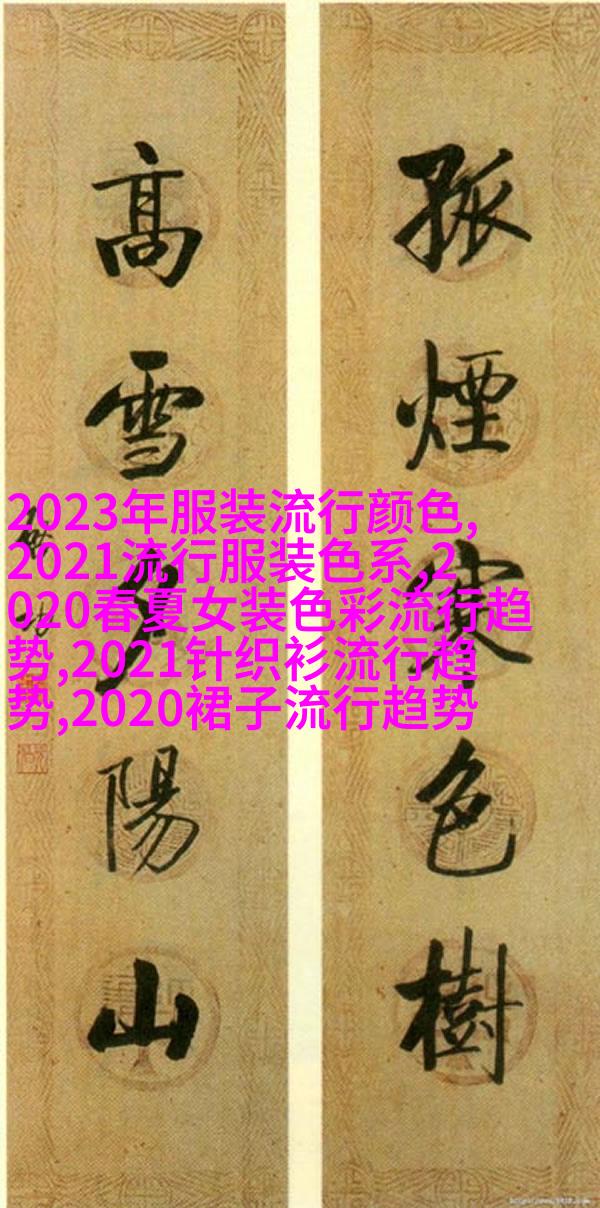 孤煙寒色樹
高雪夕陽山
2023年服装流行颜色,
2021流行服装色系,2
020春夏女装色彩流行趋
势,2021针织衫流行趋
势,2020裙子流行趋势